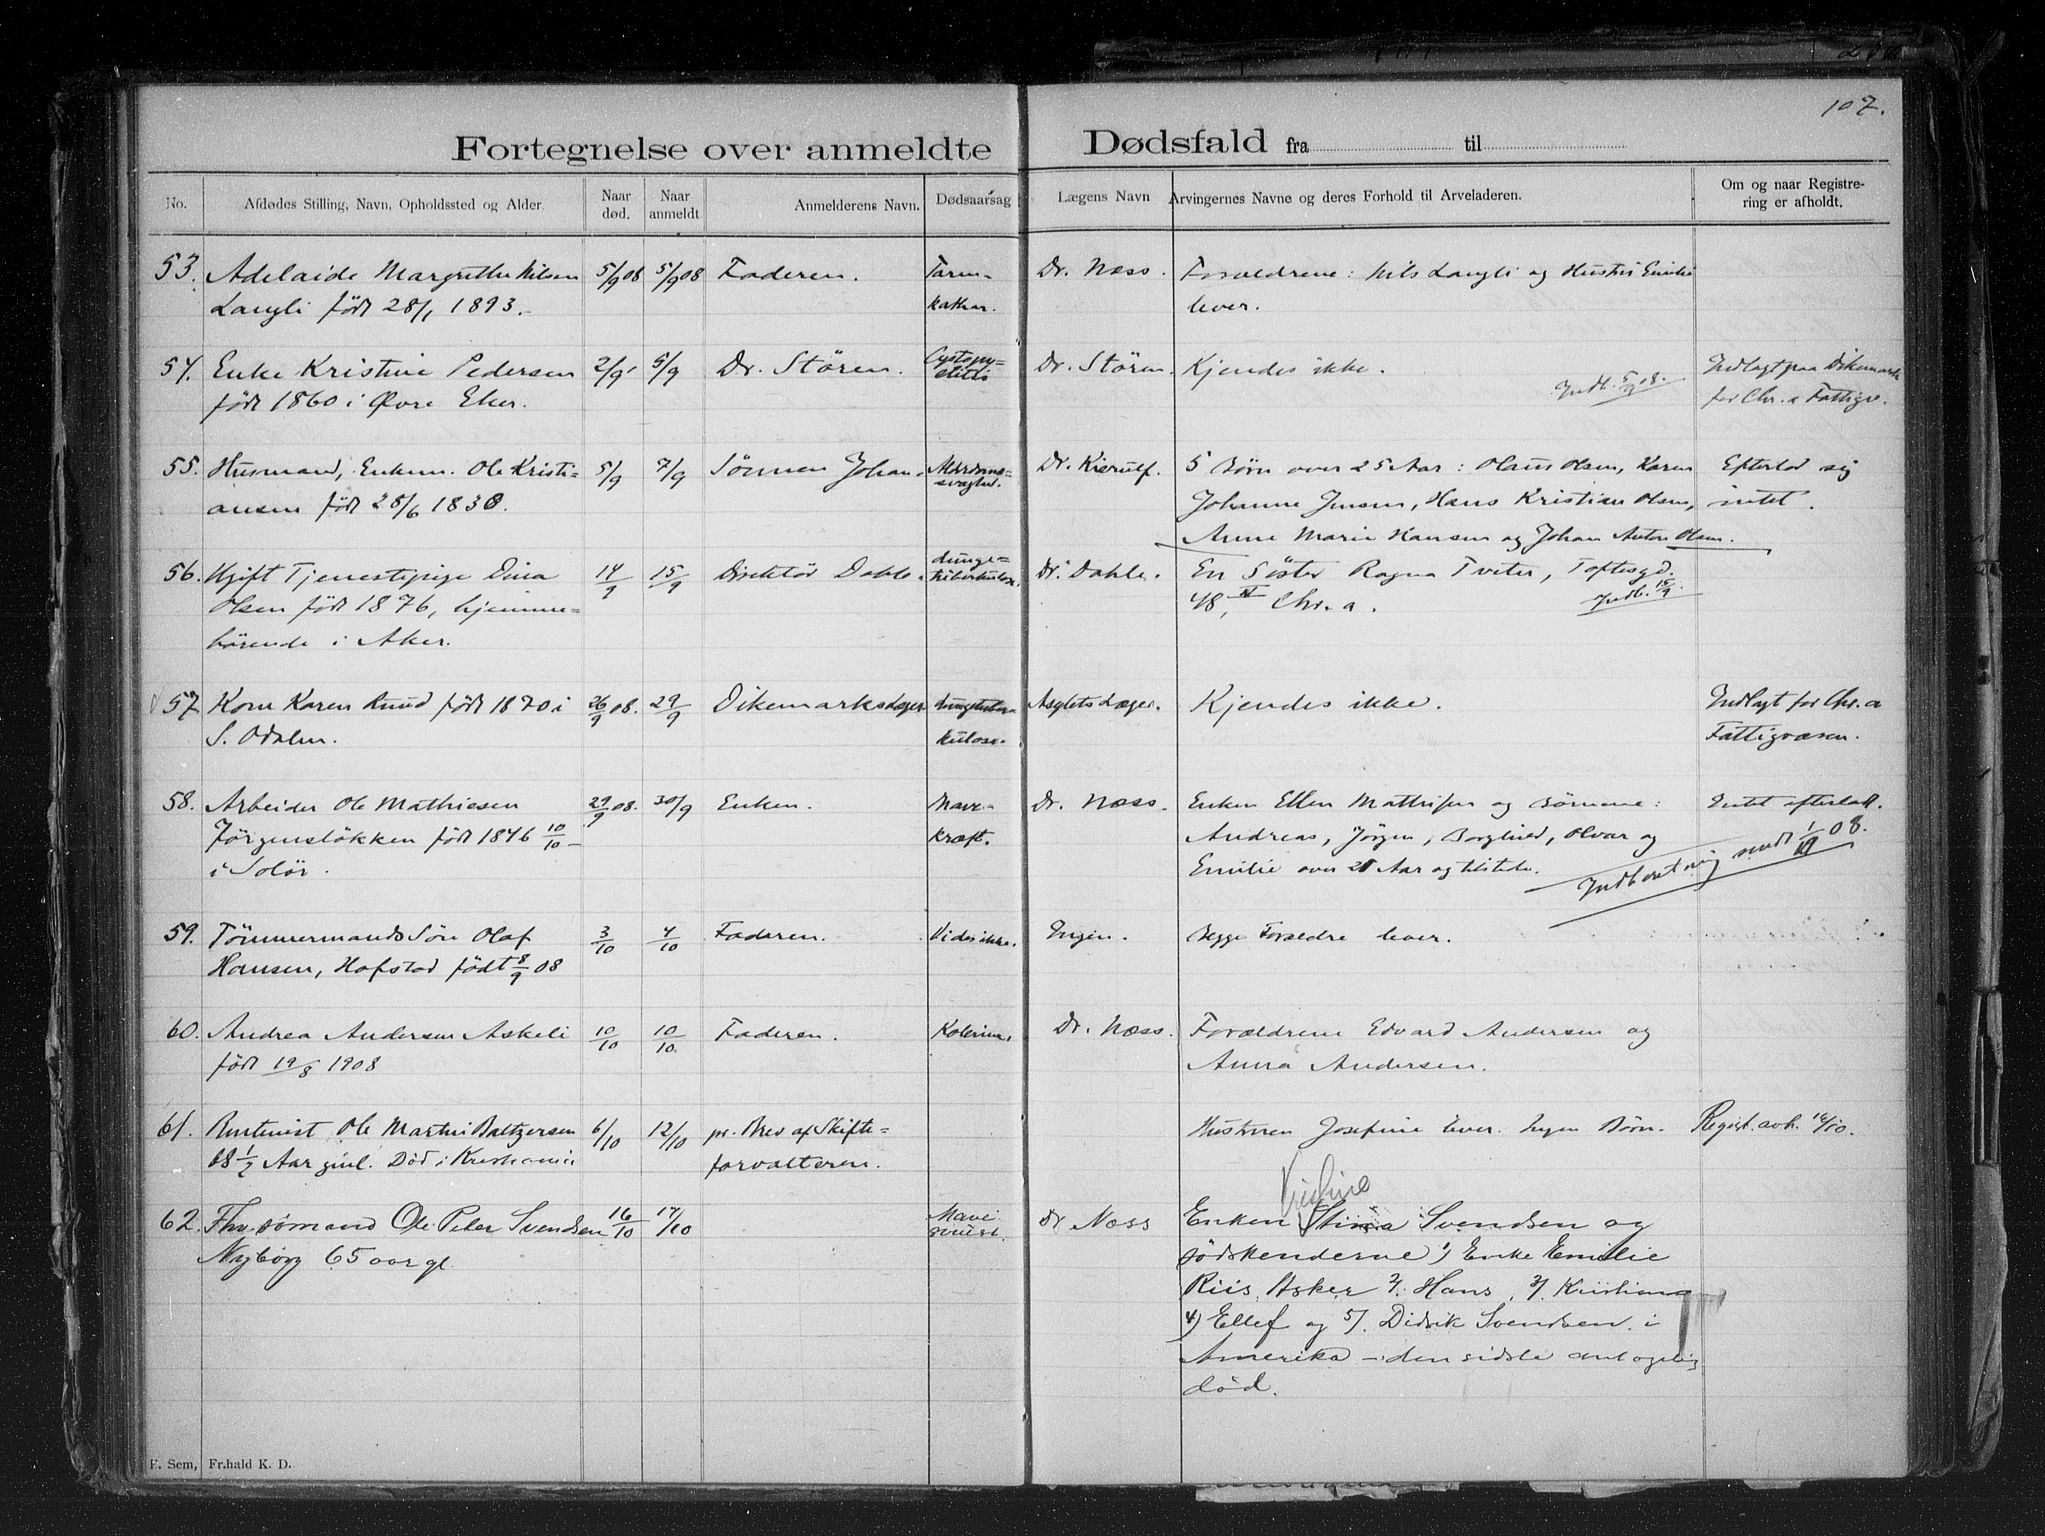 107.
Fortegnelse over anmeldte Dødsfald fra til
No. Afdødes Stilling, Navn, Opholdssted og Alder. Naar død. Naar anmeldt Anmelderens Navn. Dødsaarsag Lægens Navn Arvingernes Navne og deres Forhold til Arveladeren. Om og naar Registrering er afholdt.
53. Adelaide Margrethe Nilsen 5/9 08 5/9 08 Faderen. Tarm- Dr. Næss. Forældrene: Nils Langli og Hustru Emilie
Langli født 28/1 1893. kathar. lever.
54. Enke Kristine Pedersen 2/9 5/9 Dr. Stören. Dr. Stören. Kjendes ikke. Indlagt paa Dikemark
født 1860 i Øvre Eker. Indb. 5/9 08. for Chr.a Fattigv.
55. Husmand, Enkem. Ole Kristi- 5/9 7/9 Sönnen Johan. Alderdoms- Dr. Kierulf. 5 Börn over 25 Aar: Olaus Olsen, Karen Efterlod sig
ansen født 28/6 1830. svaghed. Johanne Jensen, Hans Kristian Olsen, intet.
Anne Marie Hansen og Johan Anton Olsen.
56. Ugift Tjenestepige Dina 14/9 15/9 Direktör Dahle. Lunge- Dr. Dahle. En Söster Ragna Tveter, Toftesgd.
Olsen født 1876, hjemme- tuberkulose. 48, IV Chr.a. Indb. 15/9.
hörende i Aker.
57 Kone Karen Ruud født 1870 i 26/9 08. 29/9 Dikemarkslæger Lungetuber- Asylets Læger. Kjendes ikke. Indlagt for Chr.a
S. Odalen. kulose. Fattigvæsen.
58. Arbeider Ole Mathiesen 29/9 08. 30/9 Enken. Mave- Dr. Næss. Enken Ellen Mathisen og Börnene: Intet efterladt.
Jørgenslökken født 1846 10/10 kræft. Andreas, Jørgen, Borghild, Olvar og
i Solör. Emilie over 21 Aar og tilstede. Indberetning sendt 1/10 08.
59. Tömmermands Sön Olaf 3/10 4/10 Faderen. Vides ikke. Ingen. Begge Forældre lever.
Hansen, Hofstad født 8/9 08
60. Andrea Andersen Askeli 10/10 10/10. Faderen. Kolerine. Dr. Næss. Forældrene Edvard Andersen og
født 19/8 1908 Anna Andersen.
61. Rentenist Ole Martin Baltzersen 6/10 12/10 pr. Brev af Skifte- Hustruen Josefine lever. Ingen Börn. Regist. avh. 16/10.
68 1/2 Aar gml. Død i Kristiania forvalteren.
62. Fhv. sömand Ole Peter Svendsen 16/10 17/10 Mave Dr Næss Enken Stina Svendsen og
Nyborg 65 aar gl. svulst. södskenderne 1) Enke Emilie
Riis, Asker 2/. Hans, 3/. Kristiane
4) Ellef og 5/. Didrik Svendsen i
Amerika – den sidste antagelig
död.
E. Sem, Fr.hald K. D.